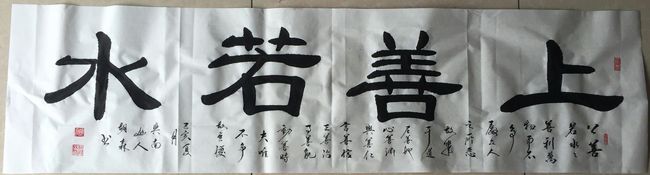 上善若水
上善
若水水
善利萬
物而不
争
處众人
之所恶
故幾
于道
居善地
心善渊
與善仁
言善信
正善治
事善能
動善時
夫唯
不争
故無
己亥夏
月
山人
书